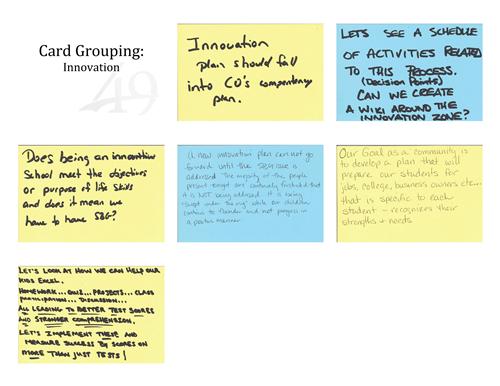 Card Grouping:
Innovation
49
Innovation
plan should fall
into CO's competency
plan.
LET'S SEE A SCHEDULE
OF ACTIVITIES RELATED
TO THIS PROCESS.
(Decision Points)
CAN WE CREATE
A WIKI AROUND THE
INNOVATION ZONE?
Does being an innovative
School meet the objectives
or purpose of life skills
and does it mean we
have to have SBG?
A new innovation plan can not go
forward until the SBG issue is
addressed. The majority of the people
present tonight are continually frustrated that
it is NOT being addressed. It is being
"swept under the rug" while our children
continue to flounder and not progress in
a positive manner.
Our Goal as a community is
to develop a plan that will
prepare our students for
jobs, college, business owners etc...
that is specific to each
student - recognizes their
strengths + needs
LET'S LOOK AT HOW WE CAN HELP OUR
KIDS EXCEL.
HOMEWORK... QUIZ... PROJECTS... CLASS
PARTICIPATION... DISCUSSION...
ALL LEADING TO BETTER TEST SCORES
AND STRONGER COMPREHENSION.
LET'S IMPLEMENT THESE AND
MEASURE SUCCESS BY SCORES ON
MORE THAN JUST TESTS!